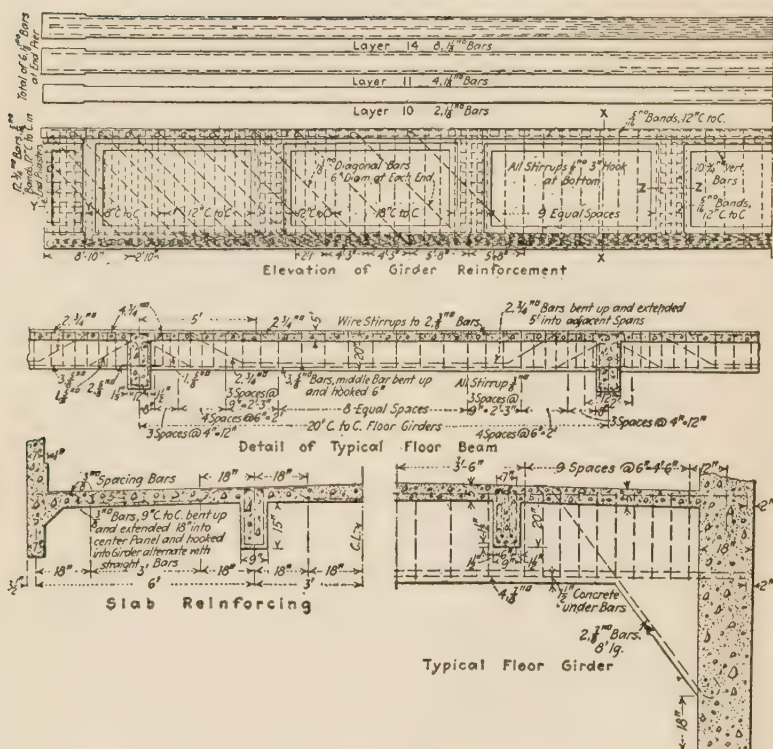 Total of 6, 1⅛"□ Bars
at End Pier
Layer 14 8, 1⅛"□ Bars
Layer 11 4, 1⅛"□ Bars
Layer 10 2, 1⅛"□ Bars
X
5/16"□ Bands, 12"C to C.
Bands, 12"C to C in
End Pilasters
Diagonal Bars
6" Diam at Each End
All Stirrups ½"□ 3" Hook
at Bottom
Vert.
Bars
Z Z
5/16"□ Bands,
12"C to C
8"C to C 12"C to C 12"C to C 18"C to C
9 Equal Spaces
8'-10" 2'10" 4'-3" 4'-3" 5'-8" 5'-8"
X
Elevation of Girder Reinforcement
2, ¾"□ 4, ¾"□ 5' 2, ¾"□ 5" Wire Stirrups to 2, ⅜"□ Bars
2, ¾"□ Bars bent up and extended
5' into adjacent Spans
20"
2, ¾"□ 3, ⅝"□ Bars, middle Bar bent up
and hooked 6"
All Stirrup
3 Spaces@
9"=2'-3"
3 Spaces@
9"=2'-3"
8 Equal Spaces
4 Spaces@6"=2' 4 Spaces@6"=2'
3 Spaces@4"=12" 3 Spaces@4"=12"
20' C. to C. Floor Girders
Detail of Typical Floor Beam
Spacing Bars
18" 18"
5"
Bars, 9"C. to C. bent up
and extended 18" into
center Panel and hooked
into Girder alternate with
straight Bars
15"
C.L.
9"
18" 3' 18" 18" 18"
3½" 6' 3'
Slab Reinforcing
3'-6" 7" 9 Spaces @6"=4'6" 2"
5"
2"
1½" 20" 18"
6"
1½" 9" 1½"
2"
4, ⅞"□ 1½" Concrete
under Bars
2, ⅞"□ Bars,
8' lg.
18"
Typical Floor Girder